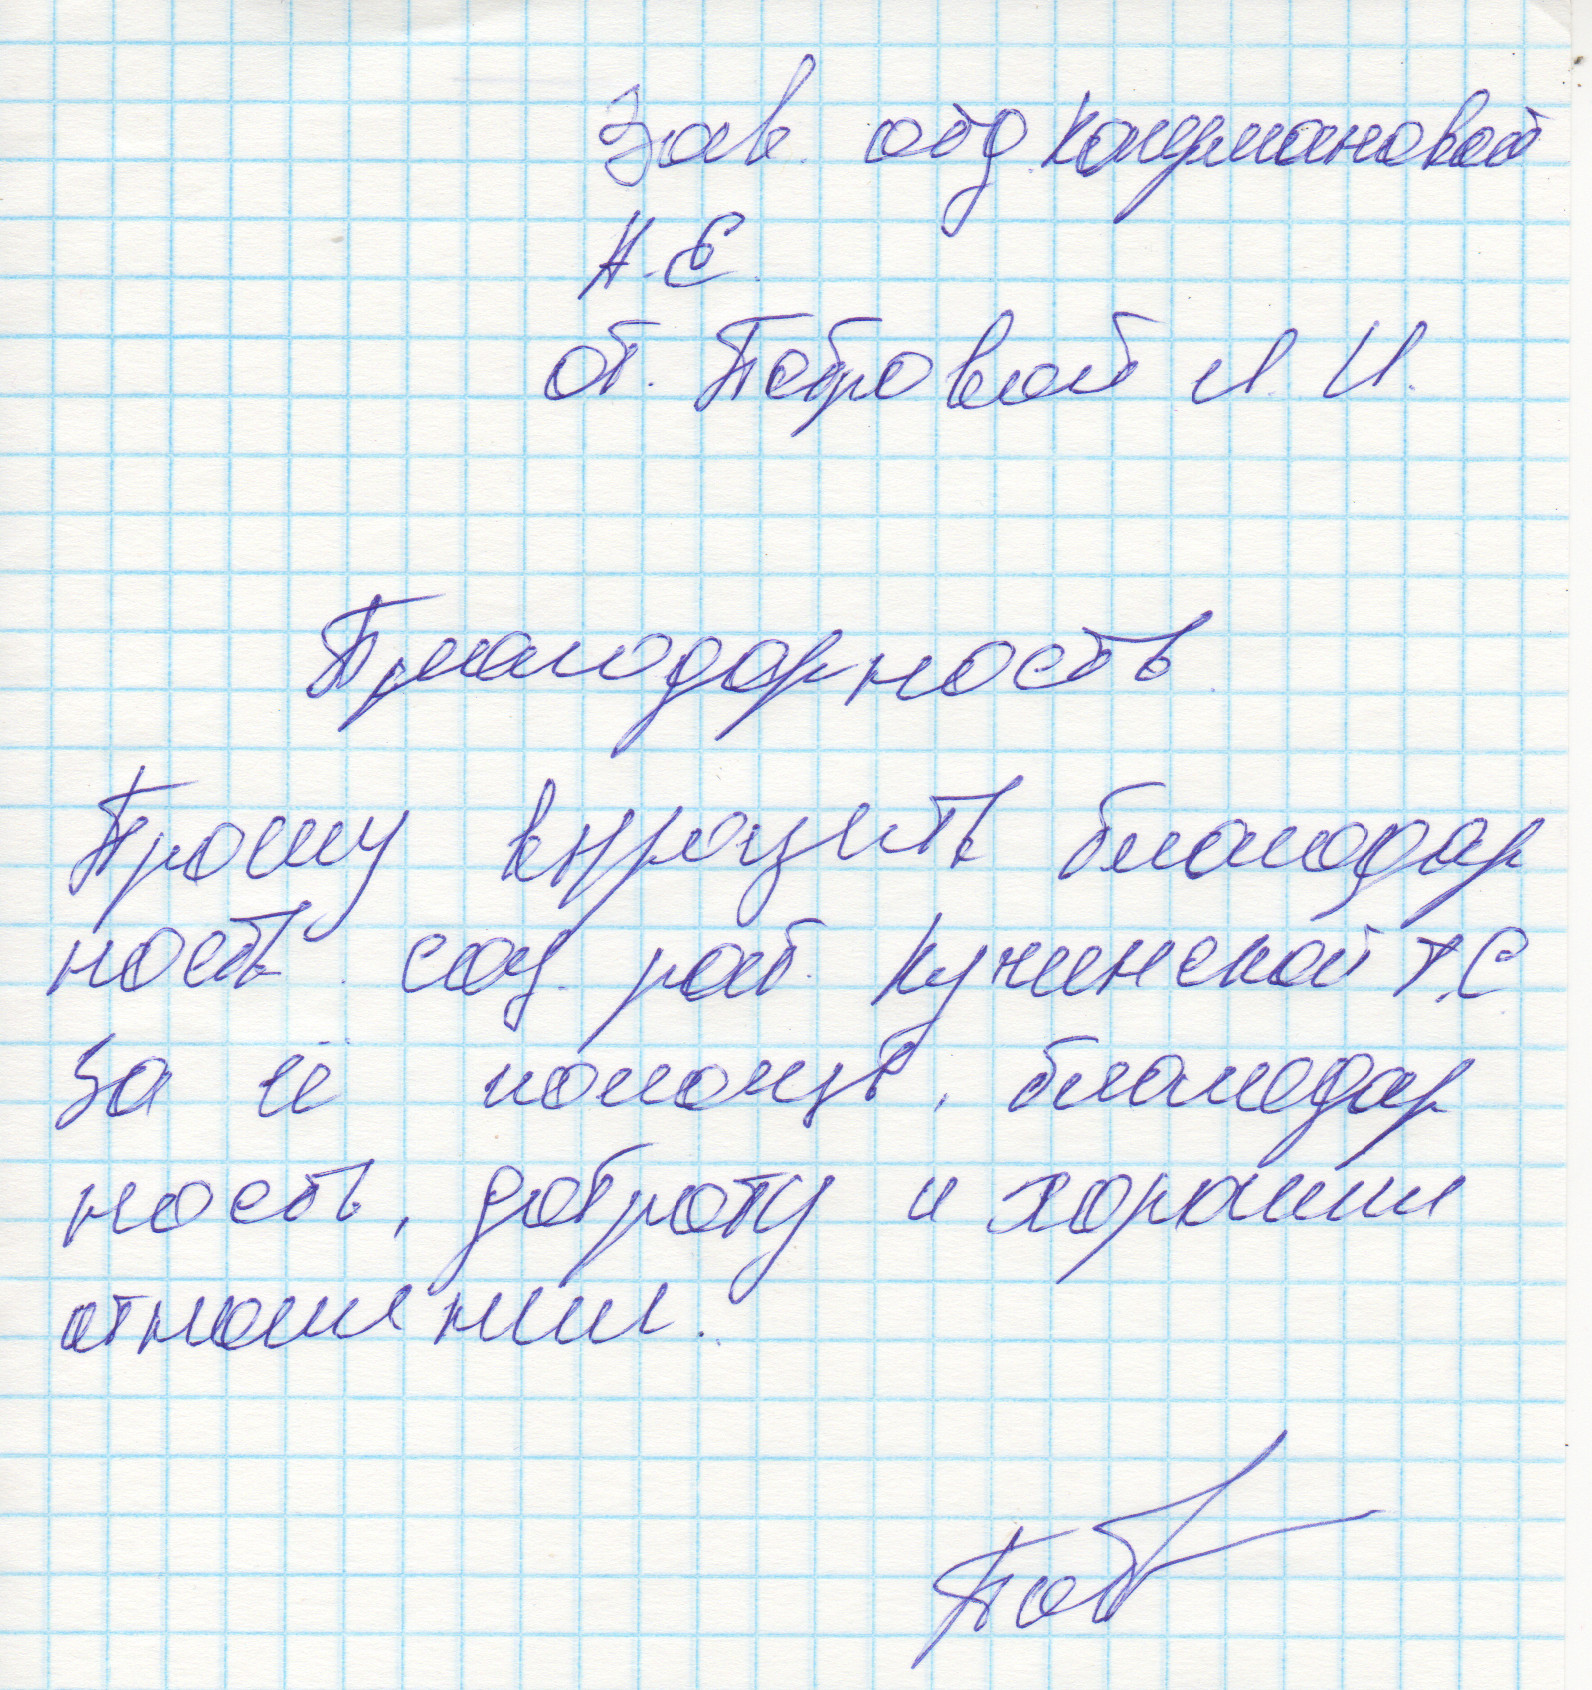 Зав. отд Кандмановой
Н.Е.
от. Петровой Л. И.
Благодарность
Прошу выразить благодар
ность соц. раб. Кучинской Т.С
За её помощь, благодар
ность, доброту и хорошии
отношении.